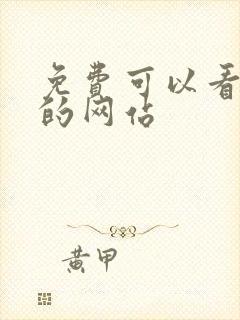 免费可以看
的网站
黄甲